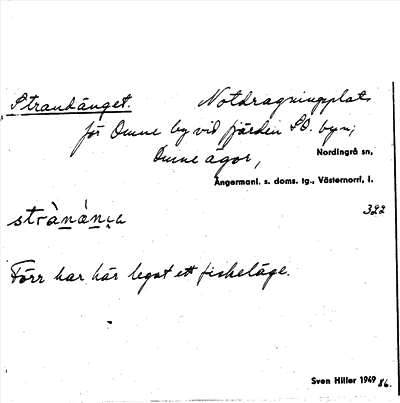 Strandänget. Notdragningsplats
för Omne by vid fjärden SO. byn;
Omne ägor, Nordingrå sn,
Ångermanl. s. doms. tg., Västernorrl, l.
strànáṇa 322
Förr har här legat ett fiskeläge.
Sven Hiller 1949 86.